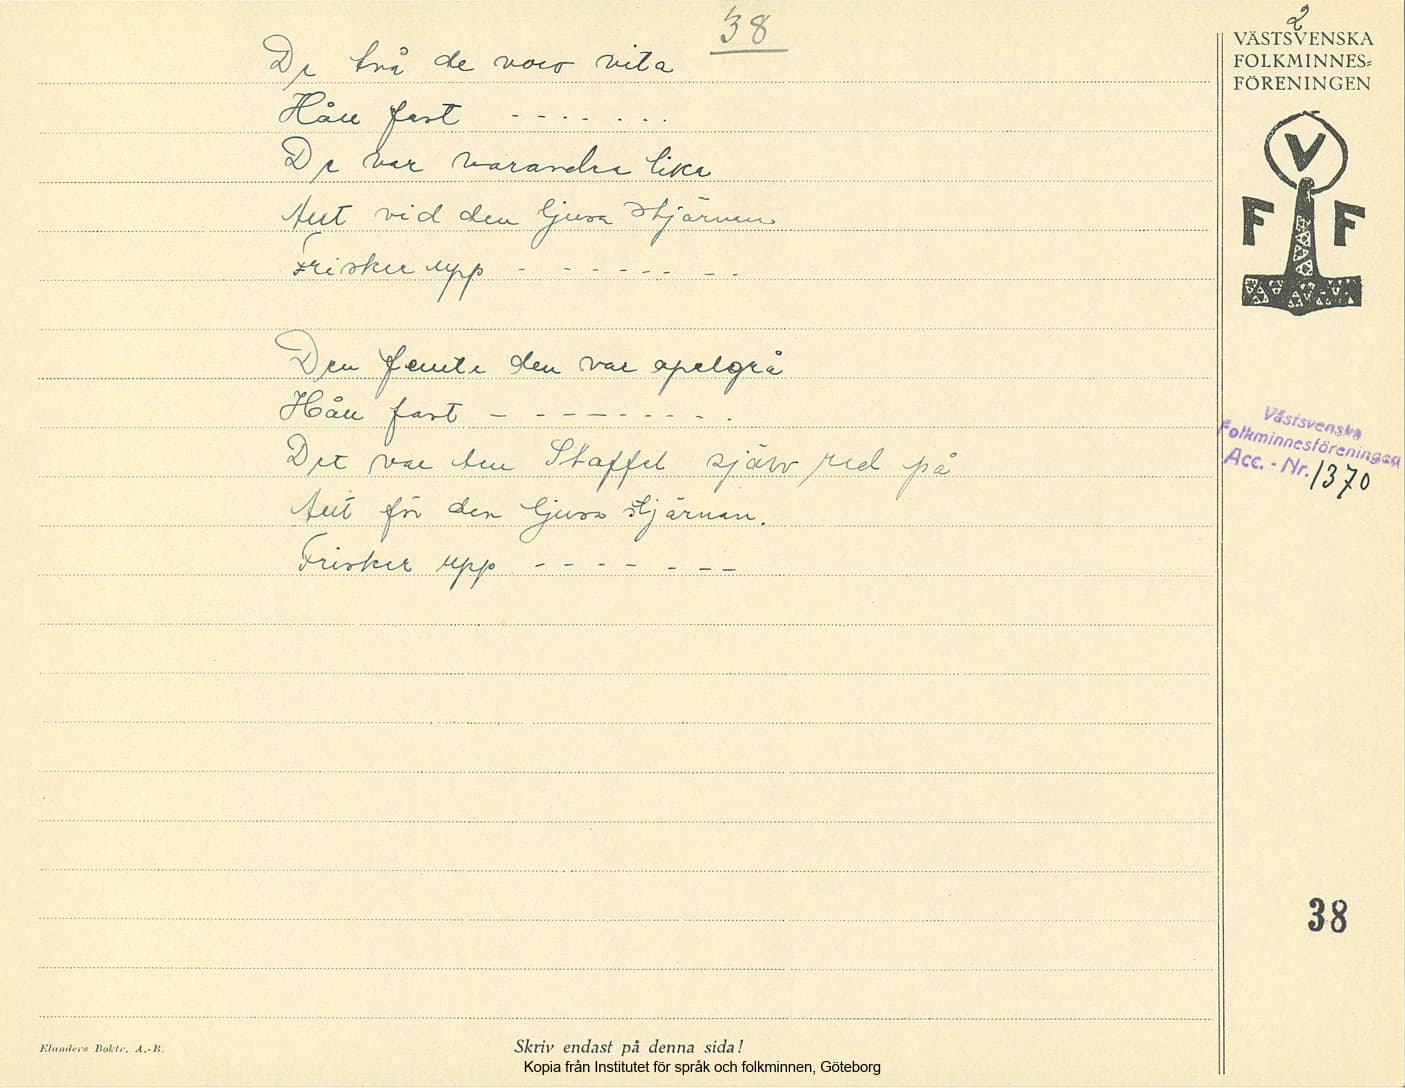 38
2
De två de voro vita
Håll fast - - - - - - -
De var varandra lika
Allt vid den ljusa stjärnan
Frisker upp - - - - - - - -
Den femte den var apelgrå
Håll fast - - - - - - - - -
Det var den Staffel själv red på
Allt för den ljusa stjärnan.
Frisker upp - - - - - - -
VÄSTSVENSKA
FOLKMINNES=
FÖRENINGEN
V
F F
Västsvenska
Folkminnesföreningen
Acc. - Nr. 1370
38
Elanders Boktr. A.-B.
Skriv endast på denna sida!
Kopia från Institutet för språk och folkminnen, Göteborg